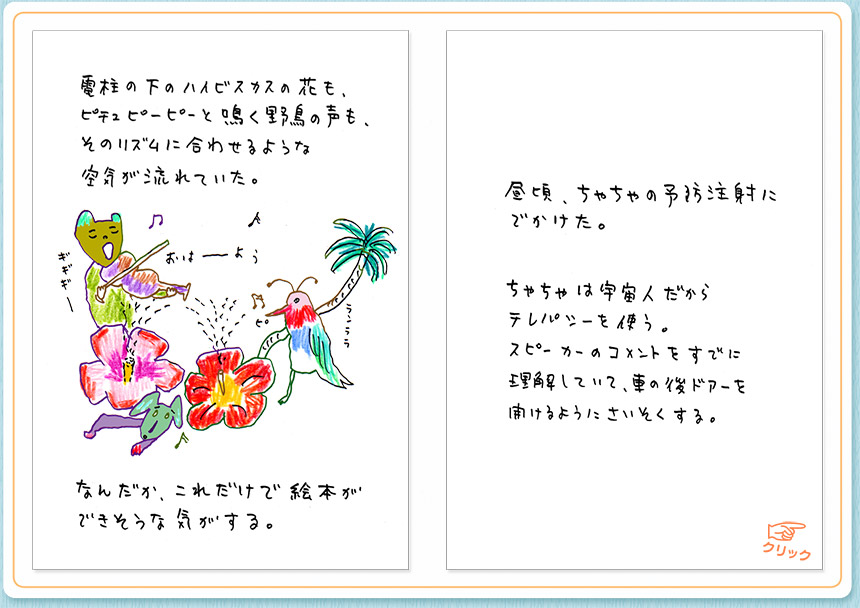 電柱の下のハイビスカスの花も、
ピチュピーピーと鳴く野鳥の声も、
そのリズムに合わせるような
空気が流れていた。
ギギギー
おはーよう
ピ
ランララ
なんだか、これだけで絵本が
できそうな気がする。
昼頃、ちゃちゃの予防注射に
でかけた。
ちゃちゃは宇宙人だから
テレパシーを使う。
スピーカーのコメントをすでに
理解していて、車の後ドアーを
開けるようにさいそくする。
クリック